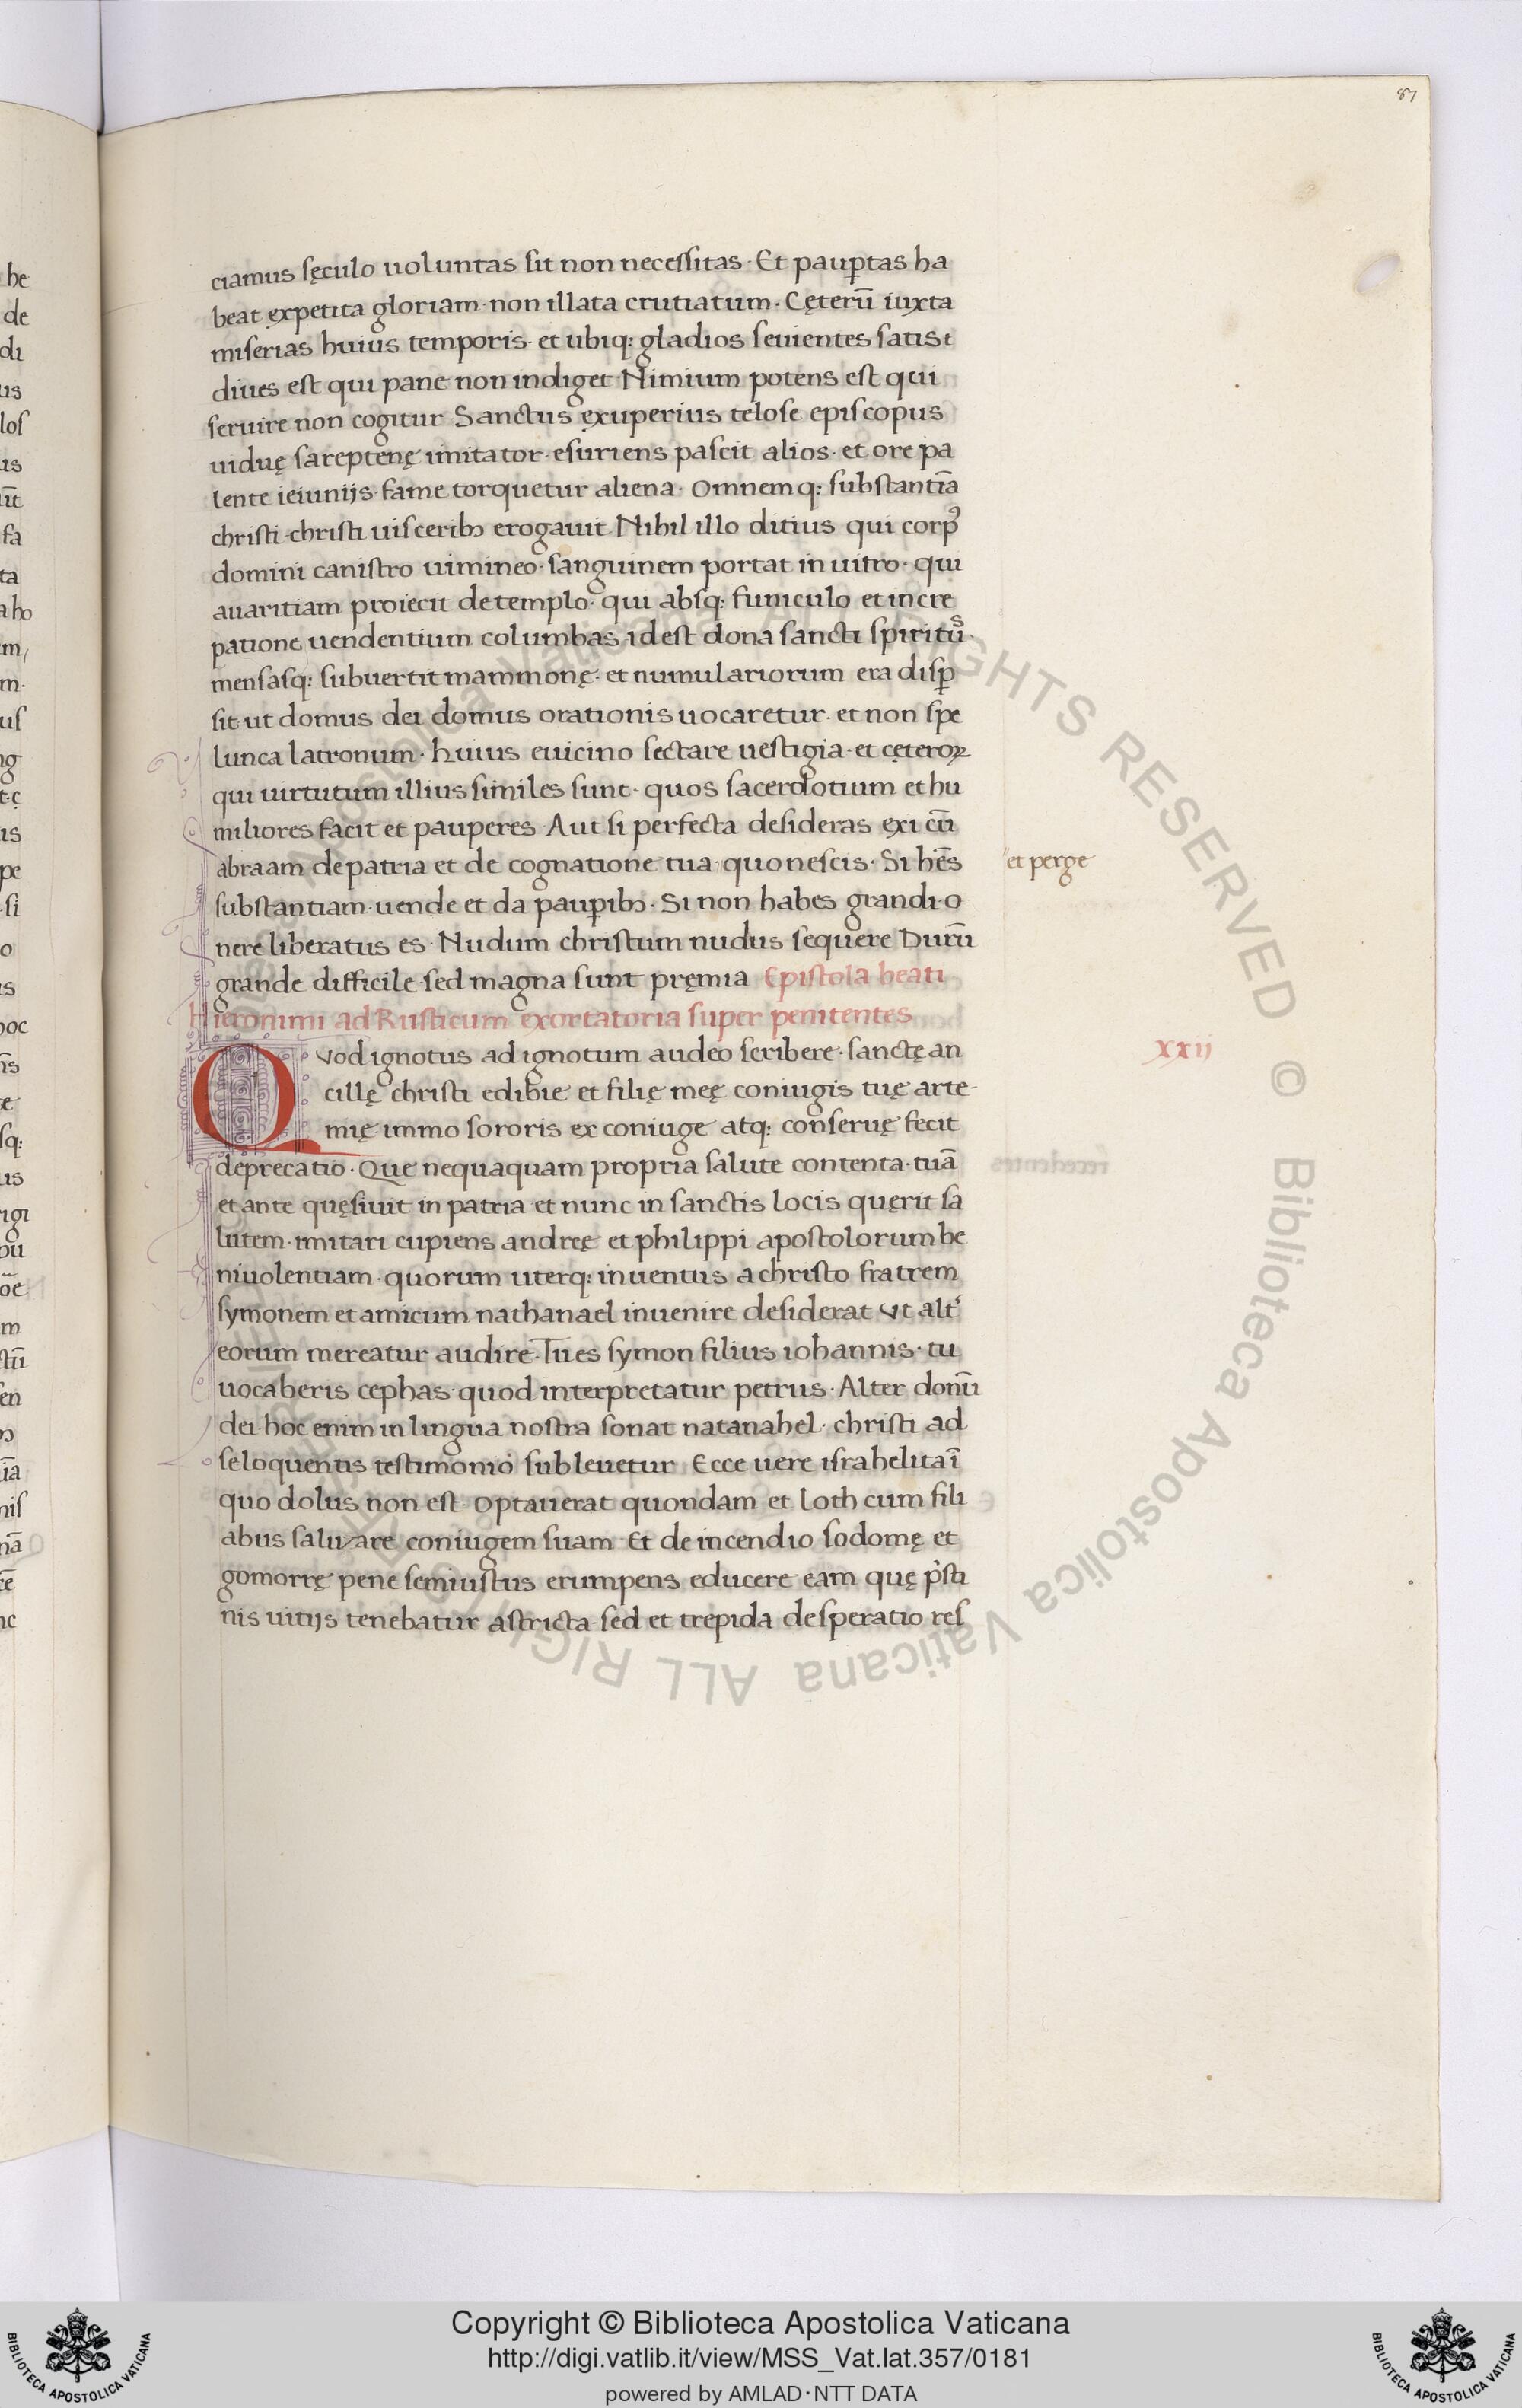 87
ciamus sęculo uoluntas sit non necessitas· Et paup̱tas ha
beat expetita gloriam· non illata crutiatum· Cęterū iuxta
miserias huius temporis· et ubiq: gladios seuientes satis
diues est qui pane non indiget· Nimium potens est qui
seruire non cogitur· Sanctus exuperius telose episcopus
uiduę sareptenę imitator· esuriens pascit alios· et ore pa
lente ieiunijs· fame torquetur aliena· Omnemq: substantiā
christi· christi uisceribꝫ erogauit· Nihil illo ditius qui corpꝰ
domini canistro uimineo· sanguinem portat in uitro· qui
auaritiam proiecit de templo· qui absq: funiculo et incre
patione uendentium columbas· id est dona sancti spiritūs·
mensasq: subuertit mammonę· et numulariorum era disꝑ
sit ut domus dei domus orationis uocaretur· et non spe
lunca latronum· huius euicino sectare uestigia· et cęteroꝝ
qui uirtutum illius similes sunt· quos sacerdotium et hu
miliores facit et pauperes Aut si perfecta desideras exi cū
abraam de patria et de cognatione tua· quo nescis· Si hēs
et perge
substantiam· uende et da pauꝑibꝫ· Si non habes grandi o
nere liberatus es· Nudum christum nudus sequere Durū
grande difficile· sed magna sunt pręmia Epistola beati
Hieronimi ad Rusticum exortatoria super penitentes
xxij
Qvod ignotus ad ignotum audeo scribere· sanctę an
cillę christi edibie et filię meę coniugis tuę arte-
mię immo sororis ex coniuge atq: conseruę fecit
deprecatio· Que nequaquam propria salute contenta· tuā
et ante quęsiuit in patria et nunc in sanctis locis quęrit sa
lutem· imitari cupiens andreę et philippi apostolorum be
niuolentiam· quorum uterq: inuentus a christo fratrem
symonem et amicum nathanael inuenire desiderat vt alt᷑
eorum mereatur audire· Tu es symon filius iohannis· tu
uocaberis cephas· quod interpretatur petrus· Alter donū
dei· hoc enim in lingua nostra sonat natanahel· christi ad
se loquentis testimonio subleuetur Ecce uere israhelita ī
quo dolus non est· optauerat quondam et loth cum fili
abus saluare coniugem suam· Et de incendio sodomę et
gomorrę pene semiustus erumpens educere eam quę p̓sti
nis uitijs tenebatur astricta· sed et trepida desperatio res
Copyright © Biblioteca Apostolica Vaticana
http://digi.vatlib.it/view/MSS_Vat.lat.357/0181
powered by AMLAD·NTT DATA